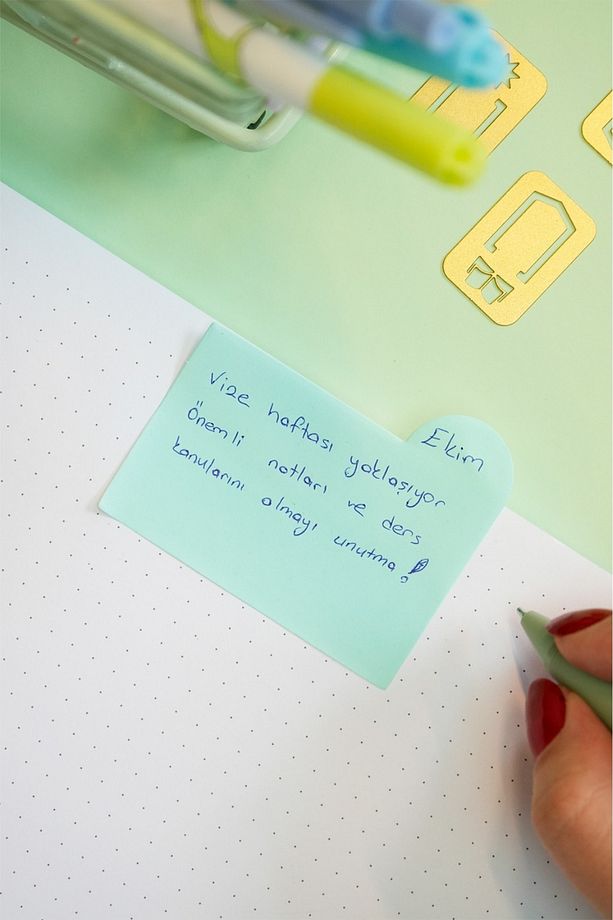 Ekim
Vize haftası yaklaşıyor
Önemli notları ve ders
konularını almayı unutma!